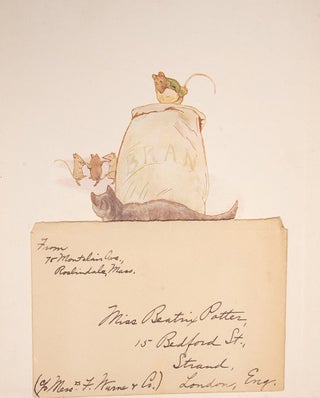 BRAN
From
78 Montclair Ave.,
Roslindale, Mass.
Miss Beatrix Potter,
15 Bedford St.,
Strand,
London, Eng.
(c/o Messrs F. Warne & Co.)